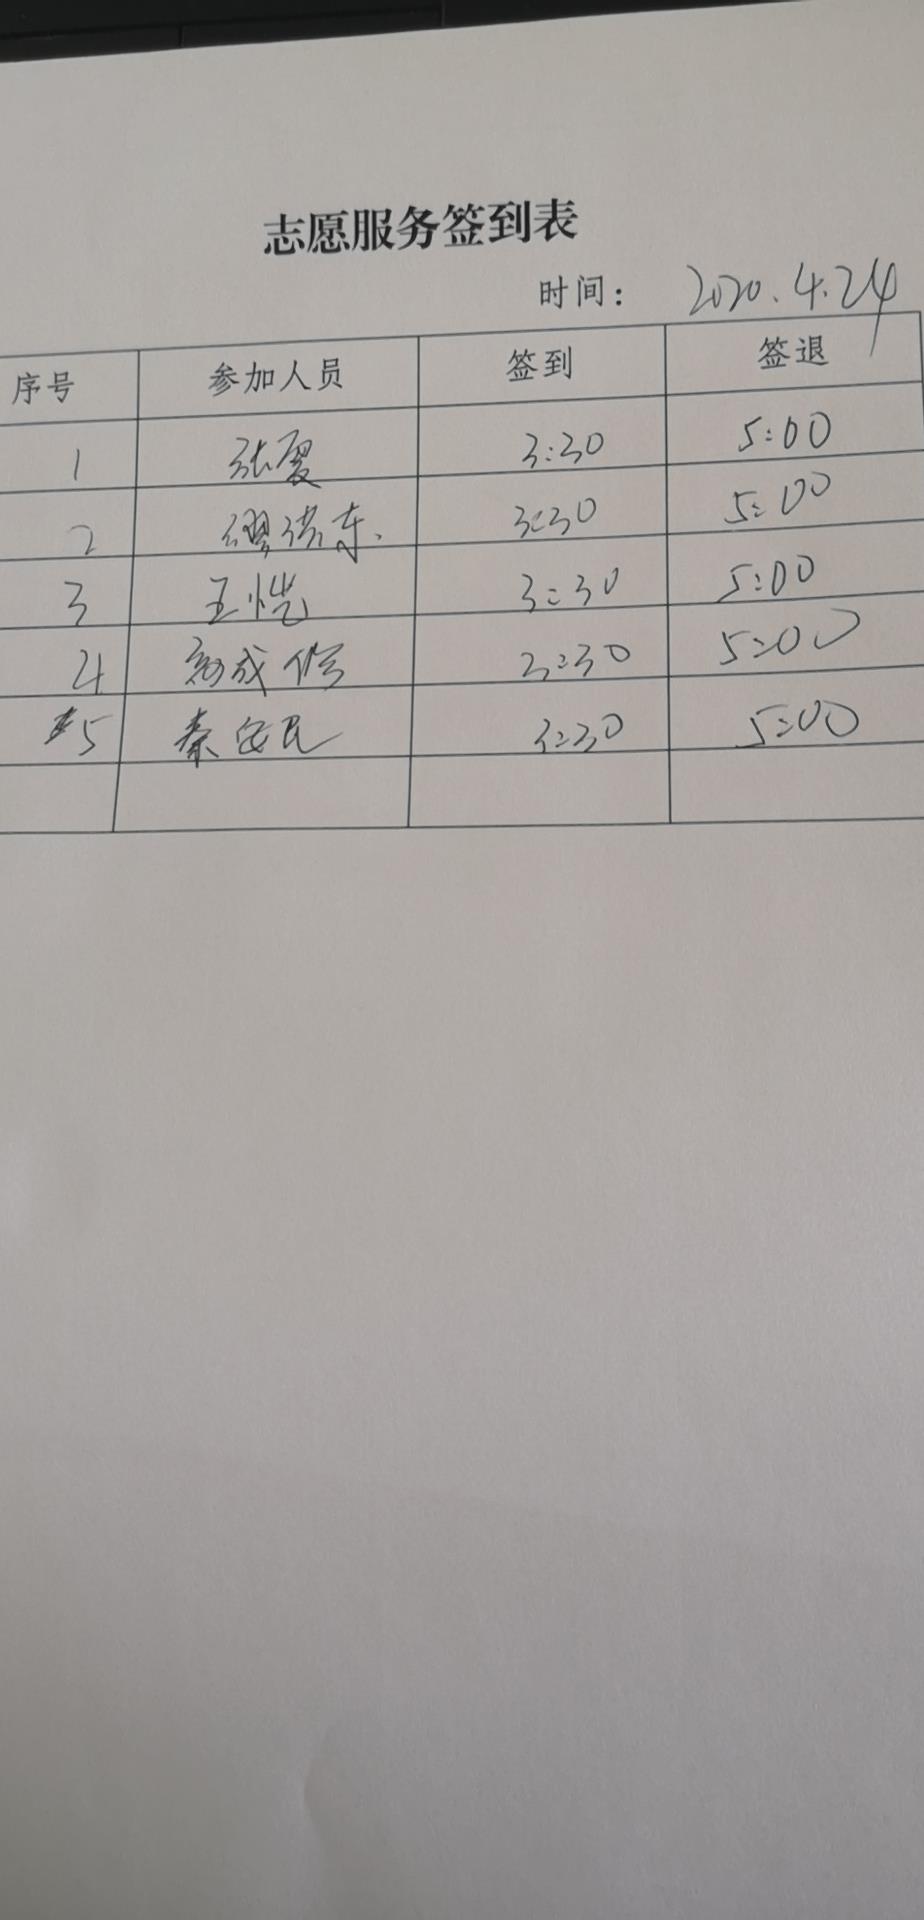 志愿服务签到表
时间： 2020.4.24
序号 参加人员 签到 签退
1 张夏 3:30 5:00
2 缪洪东 3:30 5:00
3 王恺 3:30 5:00
4 成修 3:30 5:00
5 秦安民 3:30 5:00